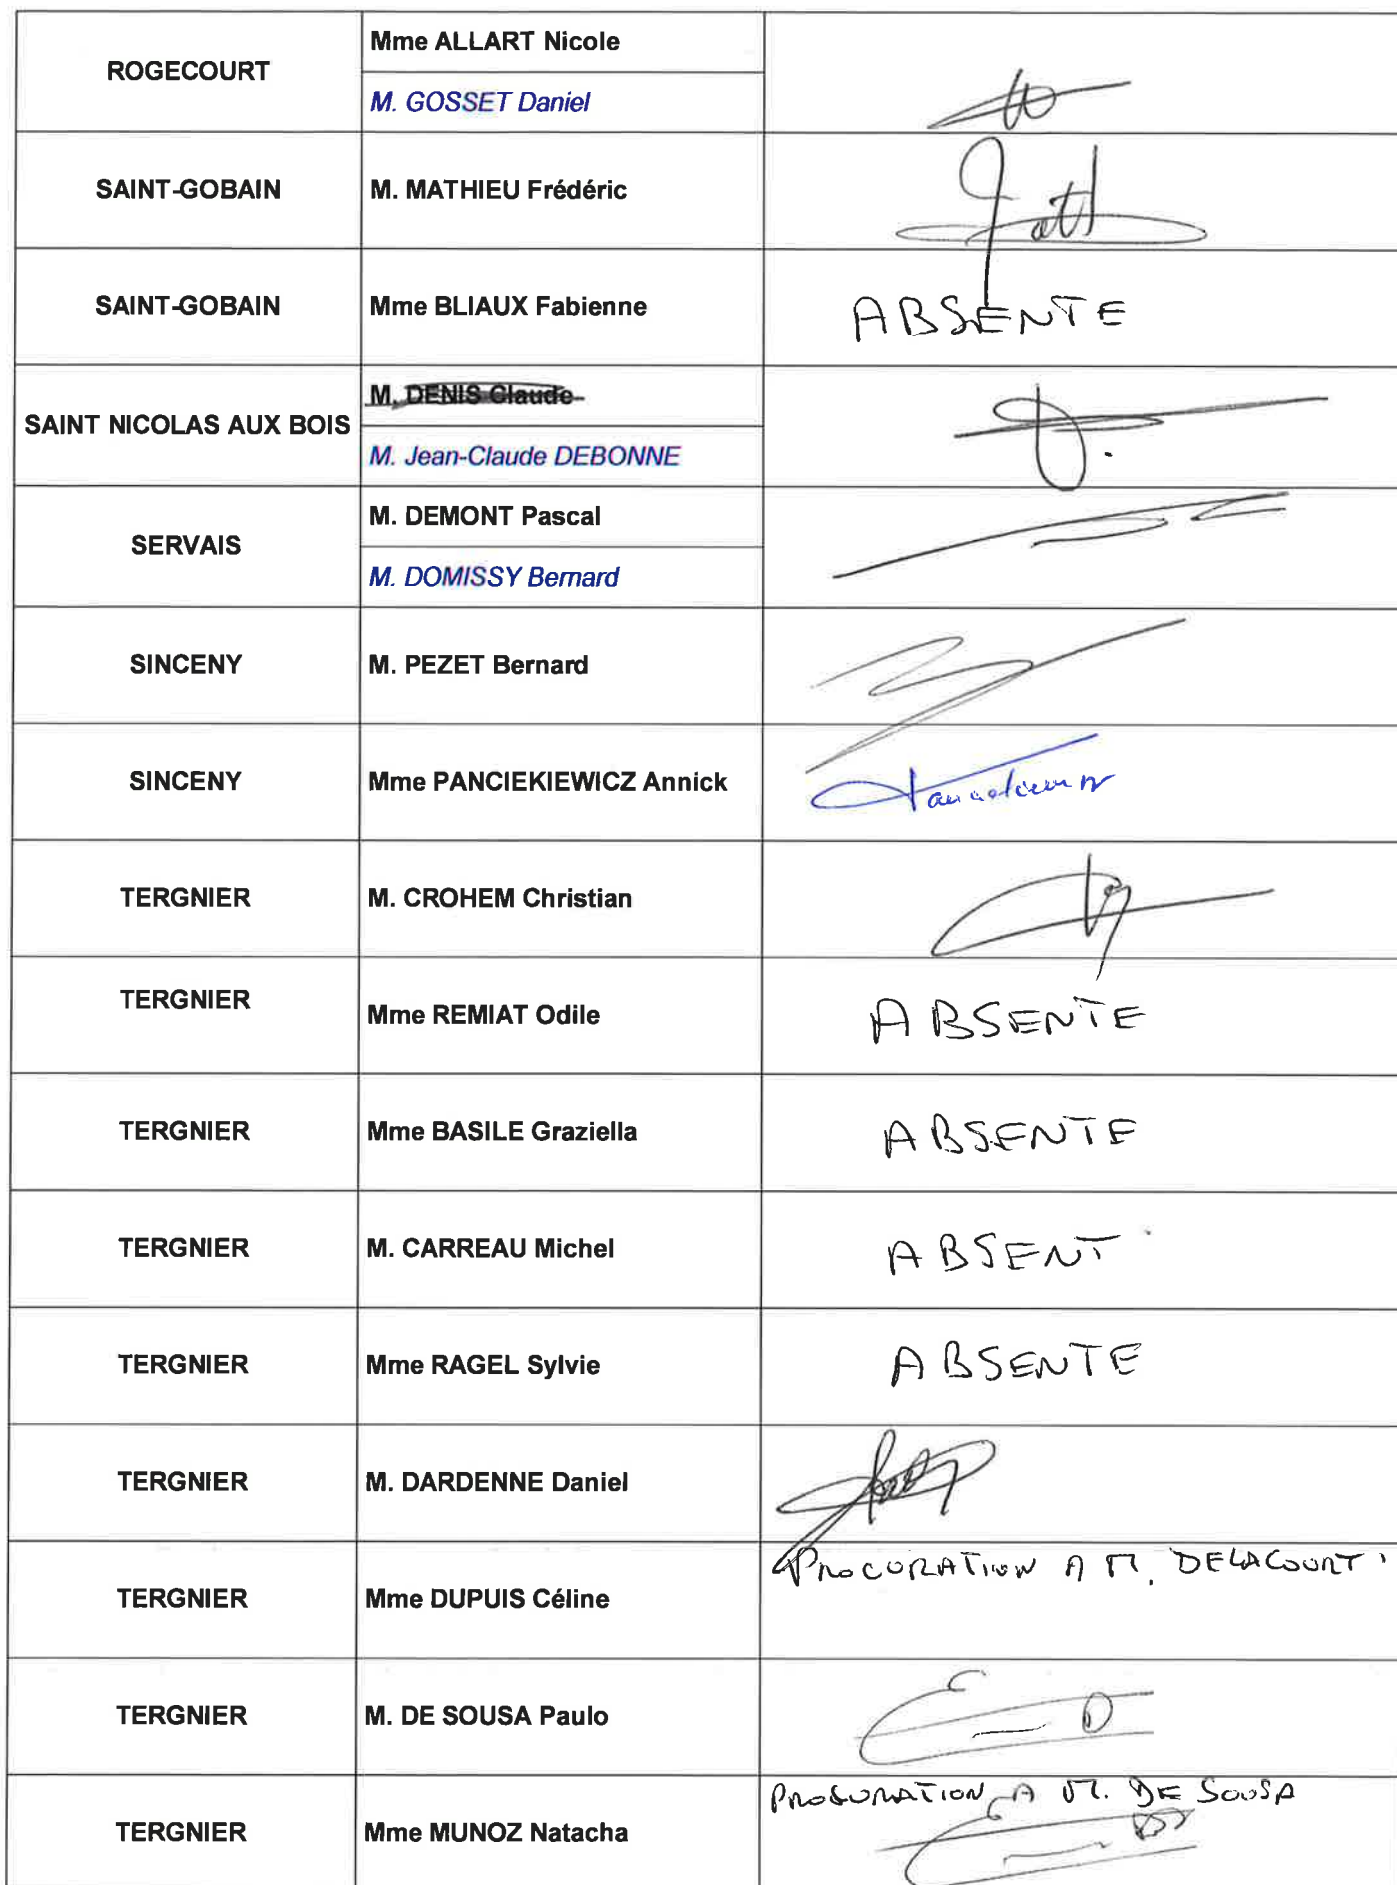 ROGECOURT
Mme ALLART Nicole
M. GOSSET Daniel
SAINT-GOBAIN
M. MATHIEU Frédéric
SAINT-GOBAIN
Mme BLIAUX Fabienne
ABSENTE
SAINT NICOLAS AUX BOIS
M. DENIS Claude
M. Jean-Claude DEBONNE
SERVAIS
M. DEMONT Pascal
M. DOMISSY Bernard
SINCENY
M. PEZET Bernard
SINCENY
Mme PANCIEKIEWICZ Annick
TERGNIER
M. CROHEM Christian
TERGNIER
Mme REMIAT Odile
ABSENTE
TERGNIER
Mme BASILE Graziella
ABSENTE
TERGNIER
M. CARREAU Michel
ABSENT
TERGNIER
Mme RAGEL Sylvie
ABSENTE
TERGNIER
M. DARDENNE Daniel
TERGNIER
Mme DUPUIS Céline
PROCURATION A M. DELACOURT
TERGNIER
M. DE SOUSA Paulo
TERGNIER
Mme MUNOZ Natacha
PROCURATION A M. DE SOUSA